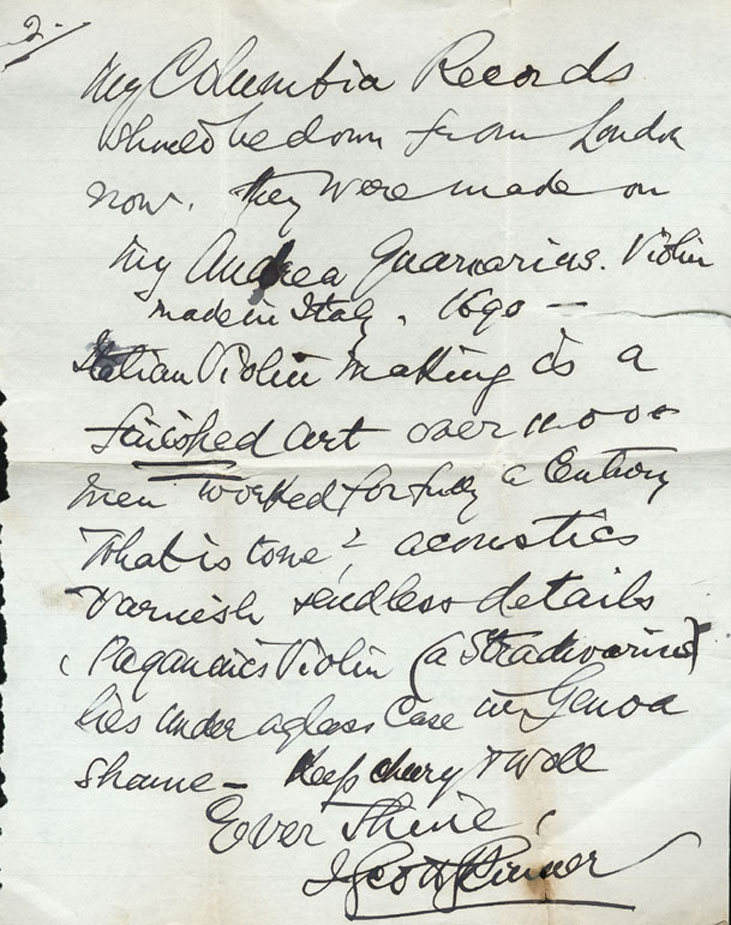 2/
My Columbia Records
should be down from London
now. They were made on
my Andrea Guarnarius. Violin
made in Italy. 1690 —
Italian Violin making is a
finished art over
men worked for fully a Century
What is tone? acoustics
Varnish & endless details
Violin (a Stradivarius)
lies under a glass Case in Genoa
shame — Keep cheery & well
Ever Thine,
J Scott Skinner